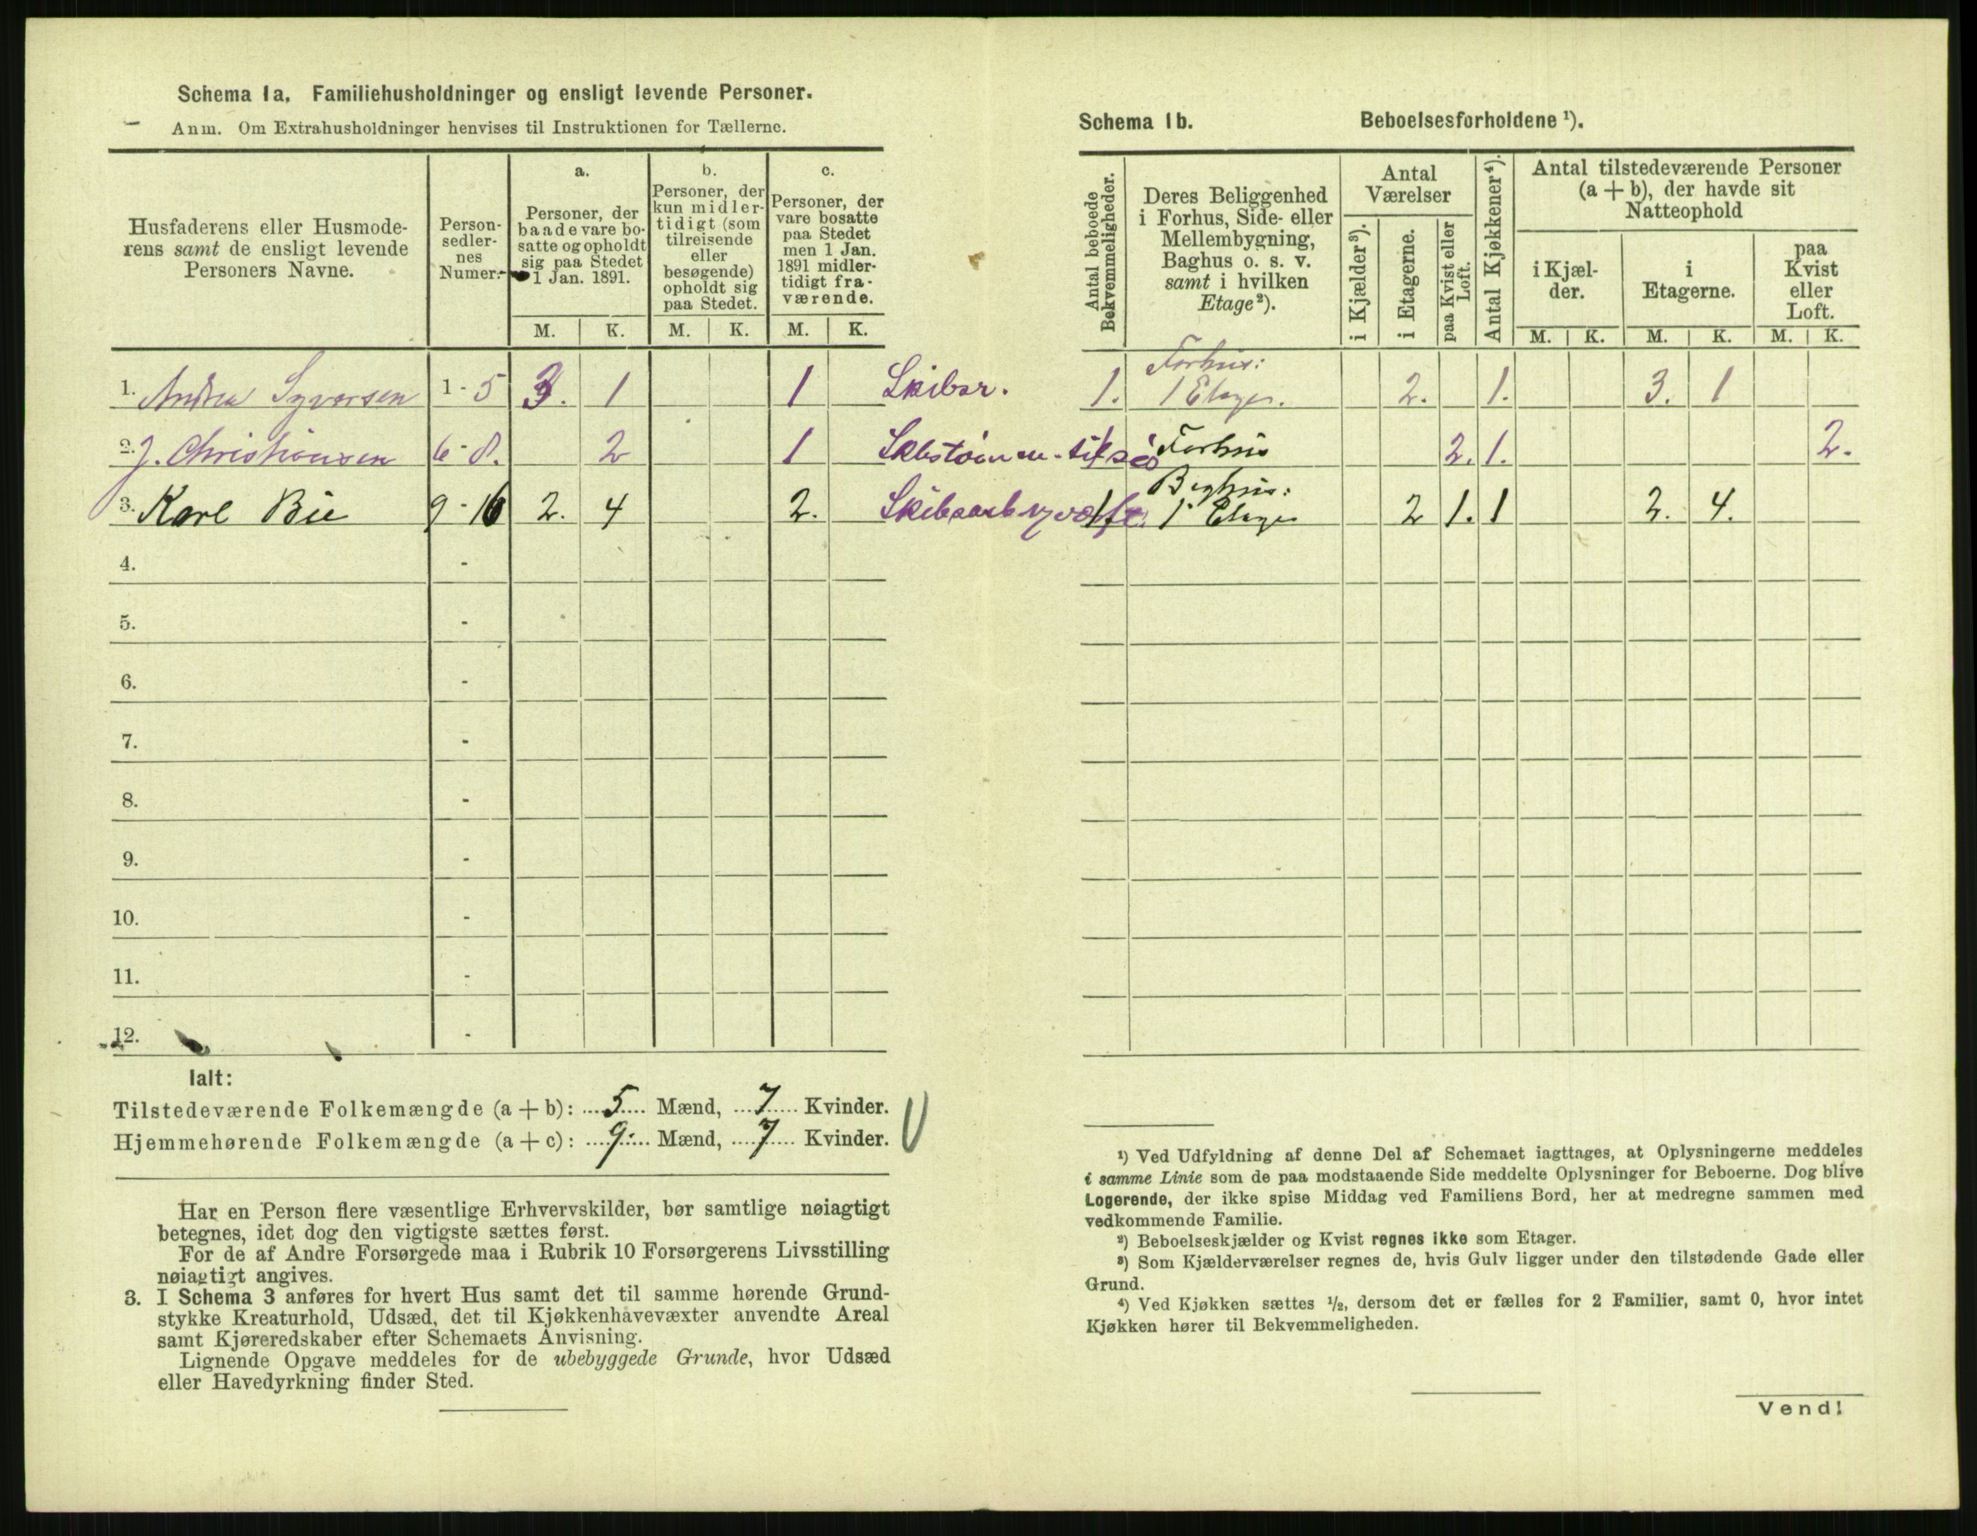 Schema 1a. Familiehusholdninger og ensligt levende Personer.
Anm. Om Extrahusholdninger henvises til Instruktionen for Tællerne.
Husfaderens eller Husmode-
rens samt de ensligt levende
Personers Navne.
Person-
sedler-
nes
Numer.
a.
Personer, der
baade vare bo-
satte og opholdt
sig paa Stedet
1 Jan. 1891.
b.
Personer, der
kun midler-
tidigt (som
tilreisende
eller
besøgende)
opholdt sig
paa Stedet.
c.
Personer, der
vare bosatte
paa Stedet
men 1 Jan.
1891 midler-
tidigt fra-
værende.
M. K. M. K. M. K.
1. Andrea Syversen 1 - 5 3. 1 1 Skibsr.
2. J. Christiansen 6 - 8. 2 1
3. Karl Bie 9 - 16 2. 4 2.
4. -
5. -
6. -
7. -
8. -
9. -
10. -
11. -
12. -
Ialt:
Tilstedeværende Folkemængde (a + b): 5 Mænd, 7 Kvinder.
Hjemmehørende Folkemængde (a + c): 9. Mænd, 7 Kvinder.
Har en Person flere væsentlige Erhvervskilder, bør samtlige nøiagtigt
betegnes, idet dog den vigtigste sættes først.
For de af Andre Forsørgede maa i Rubrik 10 Forsørgerens Livsstilling
nøiagtigt angives.
3. I Schema 3 anføres for hvert Hus samt det til samme hørende Grund-
stykke Kreaturhold, Udsæd, det til Kjøkkenhavevæxter anvendte Areal
samt Kjøreredskaber efter Schemaets Anvisning.
Lignende Opgave meddeles for de ubebyggede Grunde, hvor Udsæd
eller Havedyrkning finder Sted.
Schema 1b. Beboelsesforholdene ¹).
Antal beboede
Bekvemmeligheder.
Deres Beliggenhed
i Forhus, Side- eller
Mellembygning,
Baghus o. s. v.
samt i hvilken
Etage²).
Antal
Værelser
i Kjælder³).
i Etagerne.
paa Kvist eller
Loft.
Antal Kjøkkener⁴).
Antal tilstedeværende Personer
(a + b), der havde sit
Natteophold
i Kjæl-
der.
i
Etagerne.
paa
Kvist
eller
Loft.
M. K. M. K. M. K.
1. Forhus:
1 Etage. 2. 1. 3. 1
Forhus 2. 1. 2.
1 Baghus:
1 Etage 2 1. 1 2. 4.
¹) Ved Udfyldning af denne Del af Schemaet iagttages, at Oplysningerne meddeles
i samme Linie som de paa modstaaende Side meddelte Oplysninger for Beboerne. Dog blive
Logerende, der ikke spise Middag ved Familiens Bord, her at medregne sammen med
vedkommende Familie.
²) Beboelseskjælder og Kvist regnes ikke som Etager.
³) Som Kjælderværelser regnes de, hvis Gulv ligger under den tilstødende Gade eller
Grund.
⁴) Ved Kjøkken sættes ½, dersom det er fælles for 2 Familier, samt 0, hvor intet
Kjøkken hører til Bekvemmeligheden.
Vend!